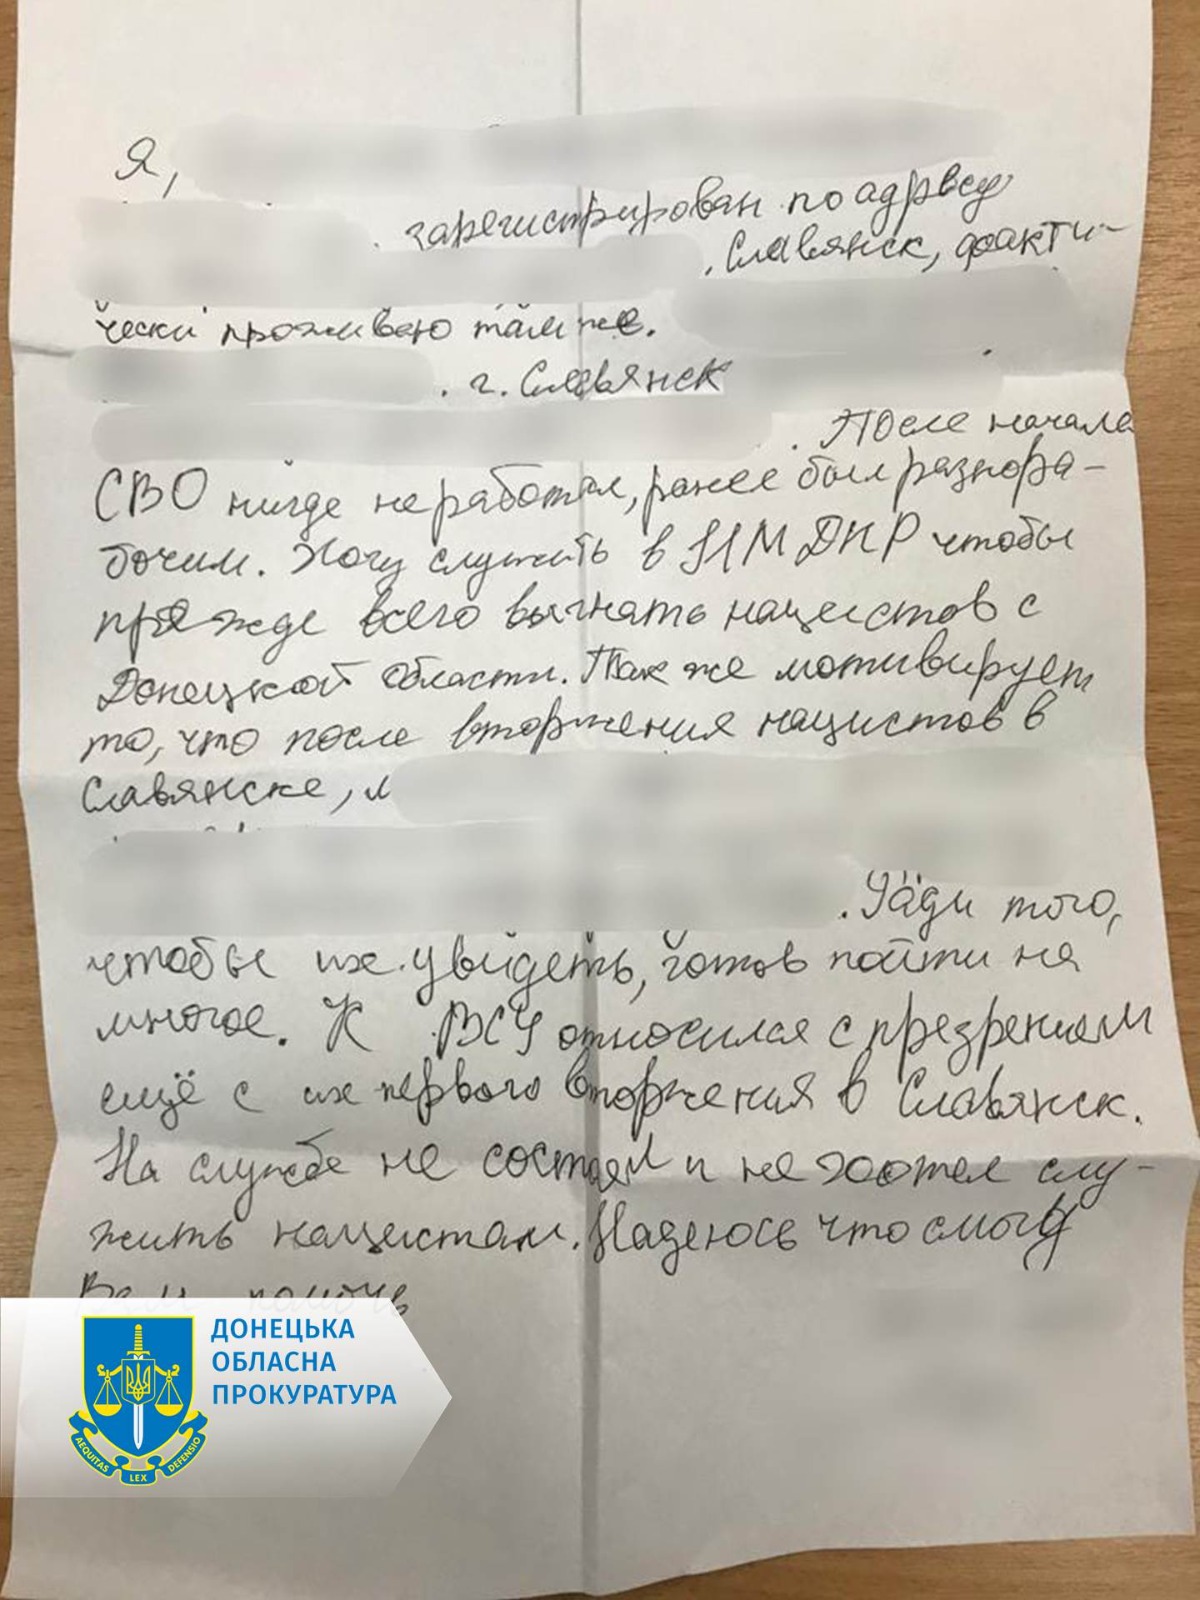 Я,
зарегистрирован по адресу
Славянск, факти-
чески проживаю там же.
. г. Славянск
. После начала
СВО нигде не работал, ранее был разнора-
бочим. Хочу служить в НМ ДНР чтобы
прежде всего выгнать нацистов с
Донецкой области. Так же мотивирует
то, что после вторжения нацистов в
Славянске,
. Ради того,
чтобы их увидеть, готов пойти на
многое. К ВСУ относился с презрением
ещё с их первого вторжения в Славянск.
На службе не состоял и не хотел слу-
жить нацистам. Надеюсь что смогу
Вам помочь
ДОНЕЦЬКА
ОБЛАСНА
ПРОКУРАТУРА
AEQUITAS LEX DEFENSIO